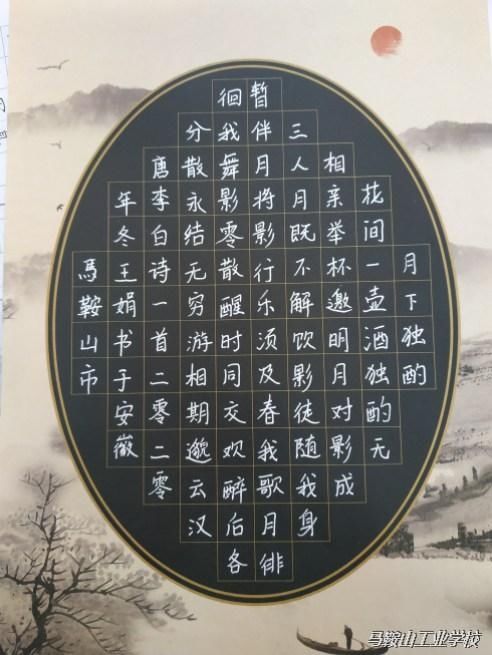 月下独酌
花间一壶酒独酌无
相亲举杯邀明月对影成
三人月既不解饮影徒随我身
暂伴月将影行乐须及春我歌月徘
徊我舞影零散醒时同交欢醉后各
分散永结无穷游相期邈云汉
唐李白诗一首二零二零
年冬王娟书于安徽
馬鞍山市
马鞍山工业学校